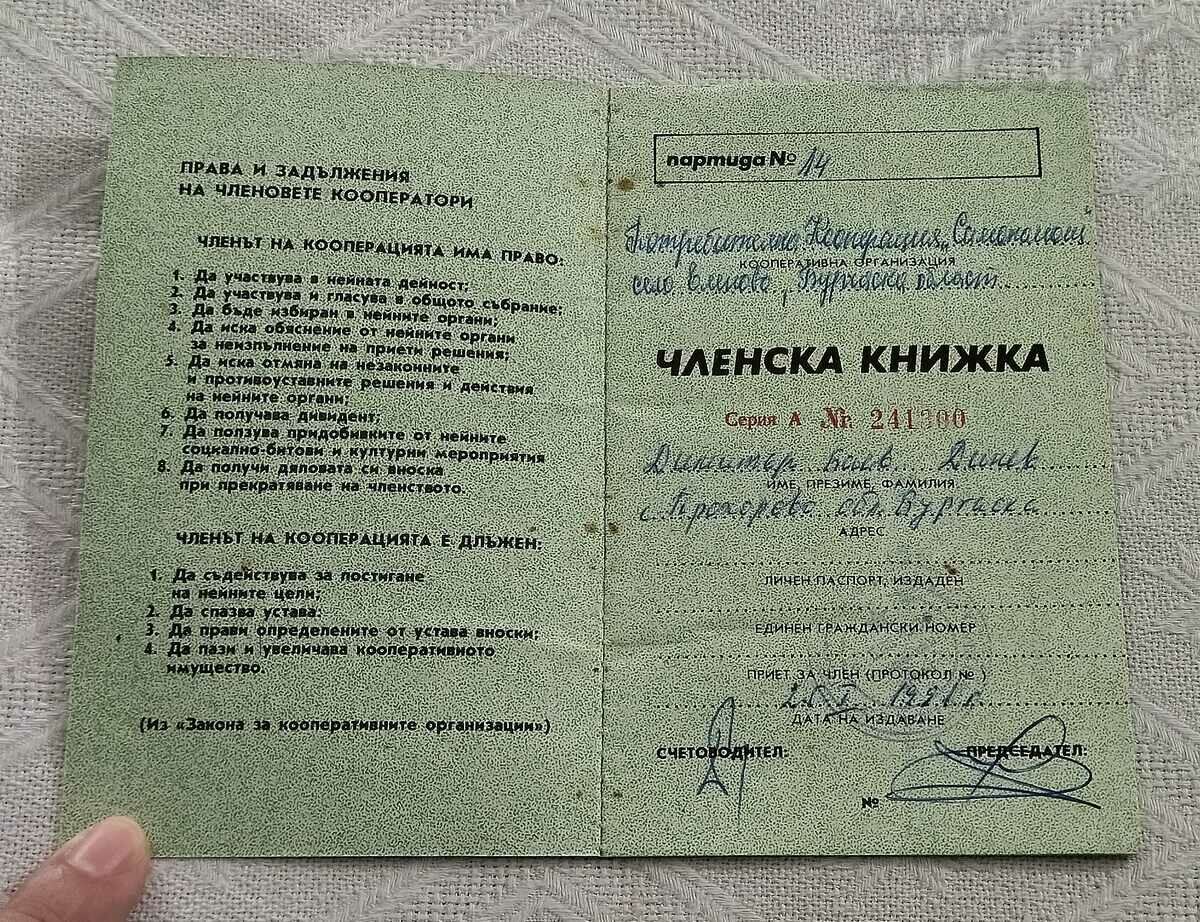 ПРАВА И ЗАДЪЛЖЕНИЯ
НА ЧЛЕНОВЕТЕ КООПЕРАТОРИ
ЧЛЕНЪТ НА КООПЕРАЦИЯТА ИМА ПРАВО:
1. Да участвува в нейната дейност;
2. Да участвува и гласува в общото събрание;
3. Да бъде избиран в нейните органи;
4. Да иска обяснение от нейните органи
за неизпълнение на приети решения;
5. Да иска отмяна на незаконните
и противоуставните решения и действия
на нейните органи;
6. Да получава дивидент;
7. Да ползува придобивките от нейните
социално-битови и културни мероприятия
8. Да получи дяловата си вноска
при прекратяване на членството.
ЧЛЕНЪТ НА КООПЕРАЦИЯТА Е ДЛЪЖЕН:
1. Да съдействува за постигане
на нейните цели;
2. Да спазва устава;
3. Да прави определените от устава вноски;
4. Да пази и увеличава кооперативното
имущество.
(Из «Закона за кооперативните организации»)
партида № 14
Потребителна Кооперация „Самопомощ"
КООПЕРАТИВНА ОРГАНИЗАЦИЯ
село Бургаска област
ЧЛЕНСКА КНИЖКА
Серия А № 241300
Димитър Колев Динев
ИМЕ, ПРЕЗИМЕ, ФАМИЛИЯ
с. Прохорово обл. Бургаска
АДРЕС
ЛИЧЕН ПАСПОРТ, ИЗДАДЕН
ЕДИНЕН ГРАЖДАНСКИ НОМЕР
ПРИЕТ ЗА ЧЛЕН (ПРОТОКОЛ № )
1991 г.
ДАТА НА ИЗДАВАНЕ
СЧЕТОВОДИТЕЛ: ПРЕДСЕДАТЕЛ:
№